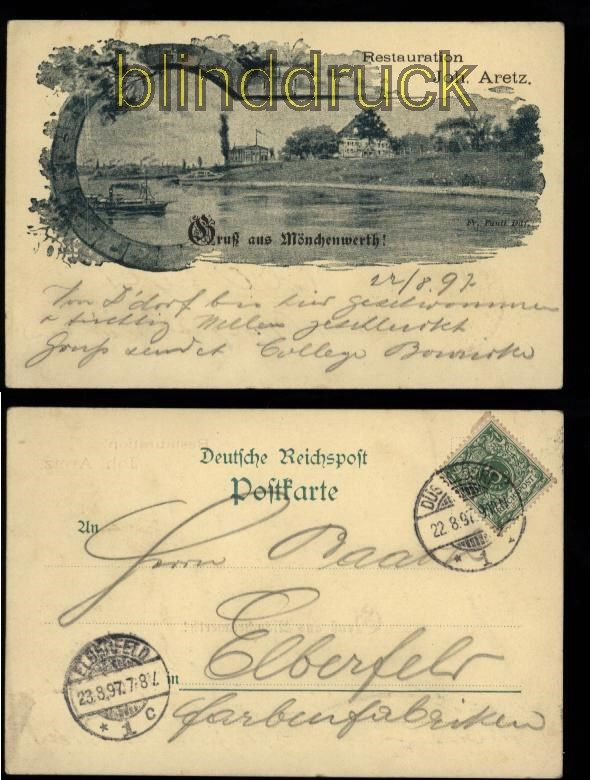 blinddruck
Restauration
Joh. Aretz.
Gruß aus Mönchenwerth!
22/8.97
Von D'dorf bis hier geschwommen
tüchtig Wellen geschluckt
Gruß sendet College
Deutsche Reichspost
Postkarte
An
Herrn
in Elberfeld
Farbenfabriken
22.8.97
* 1 *
ELBERFELD
23.8.97.7-8V.
* 1 c